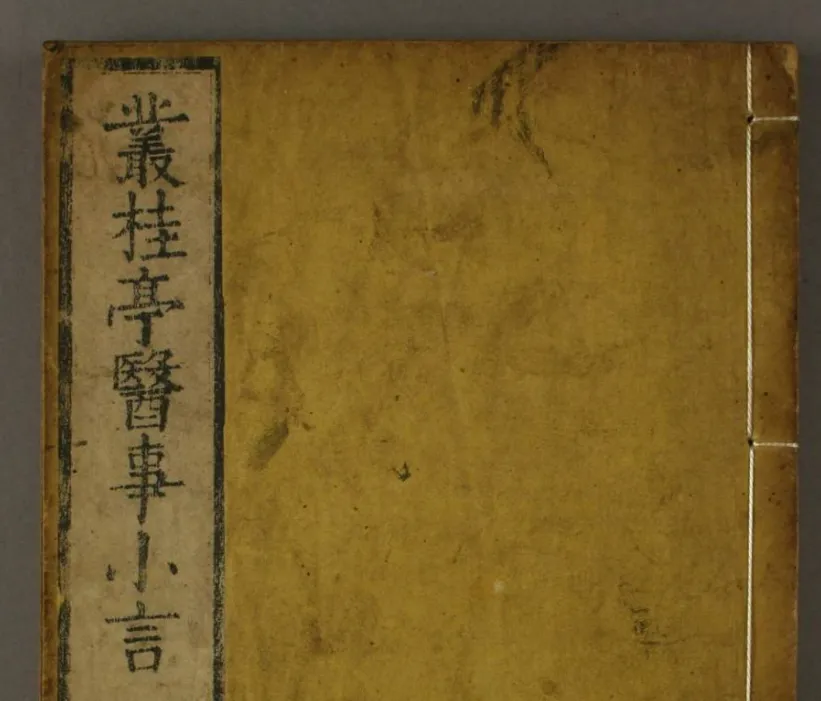 叢桂亭醫事小言